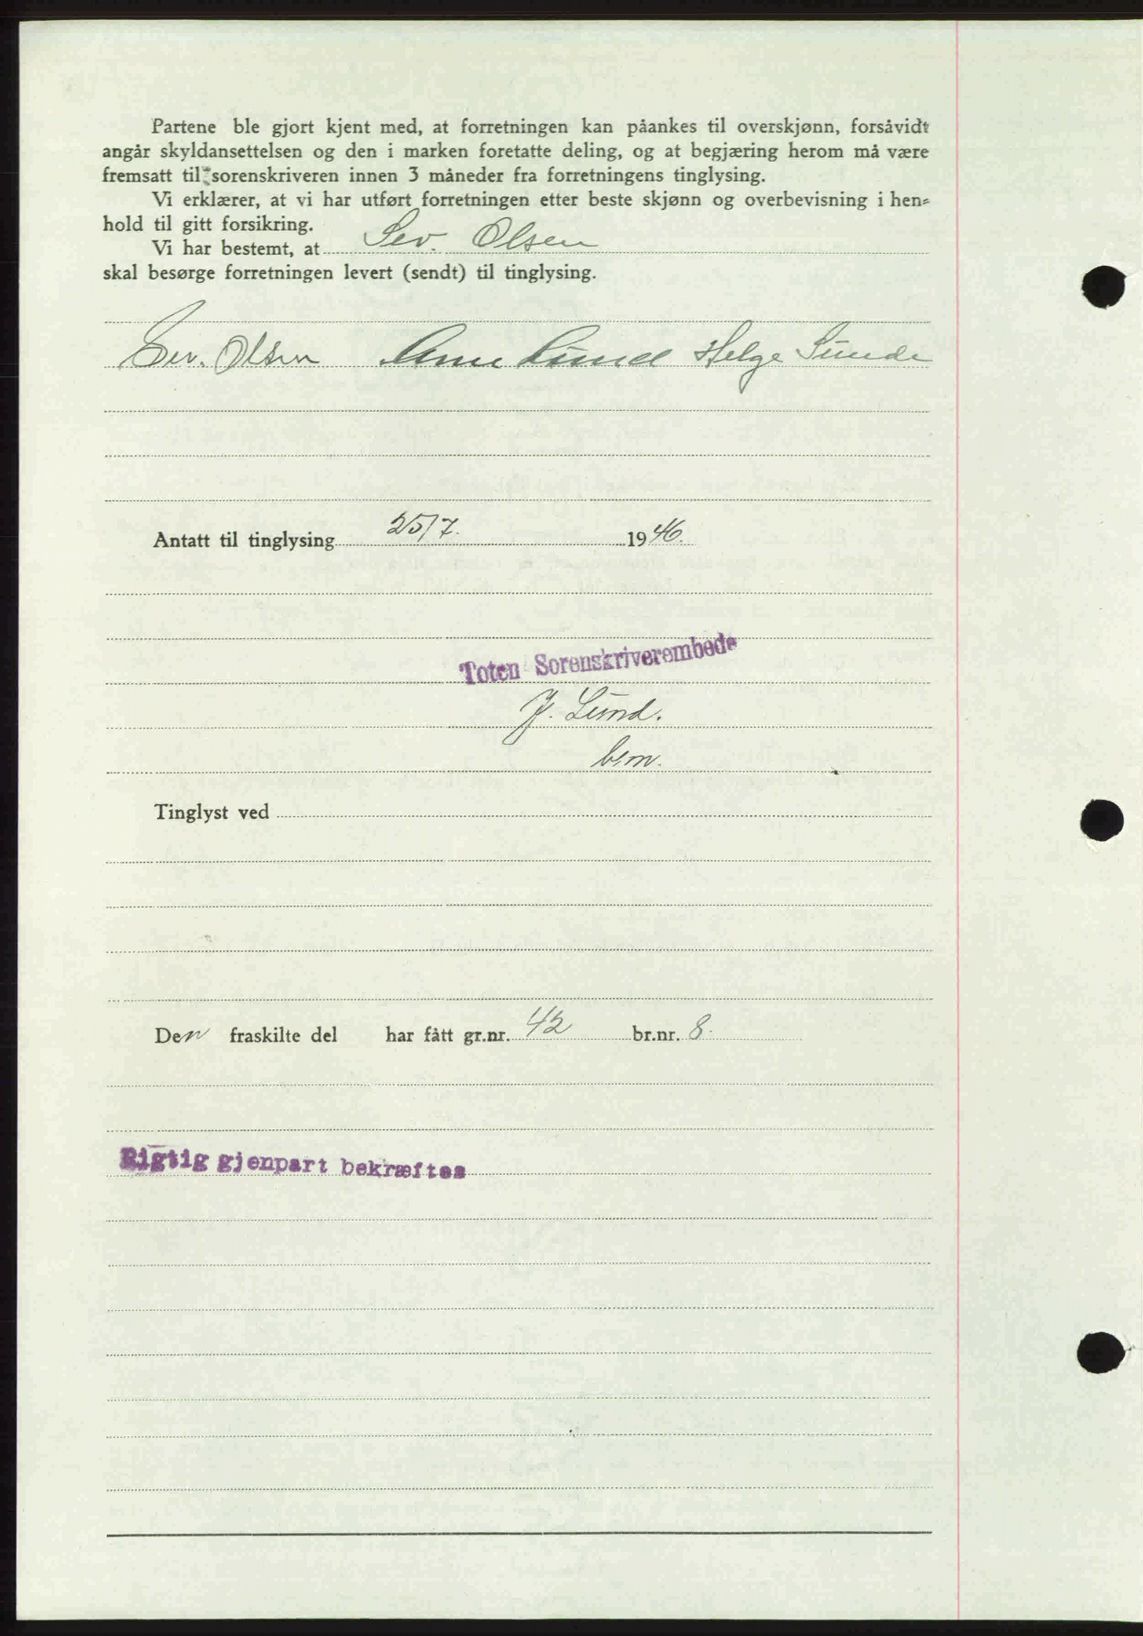 Partene ble gjort kjent med, at forretningen kan påankes til overskjønn, forsåvidt
angår skyldansettelsen og den i marken foretatte deling, og at begjæring herom må være
fremsatt til sorenskriveren innen 3 måneder fra forretningens tinglysing.
Vi erklærer, at vi har utført forretningen etter beste skjønn og overbevisning i hen-
hold til gitt forsikring.
Vi har bestemt, at Sev. Olsen
skal besørge forretningen levert (sendt) til tinglysing.
Sev. Olsen Arne Lund Helge Sunde
Antatt til tinglysing 25/7. 1946.
Toten Sorenskriverembede
J. Lund.
bem.
Tinglyst ved
Den fraskilte del har fått gr.nr. 42 br.nr. 8.
Rigtig gjenpart bekræftes